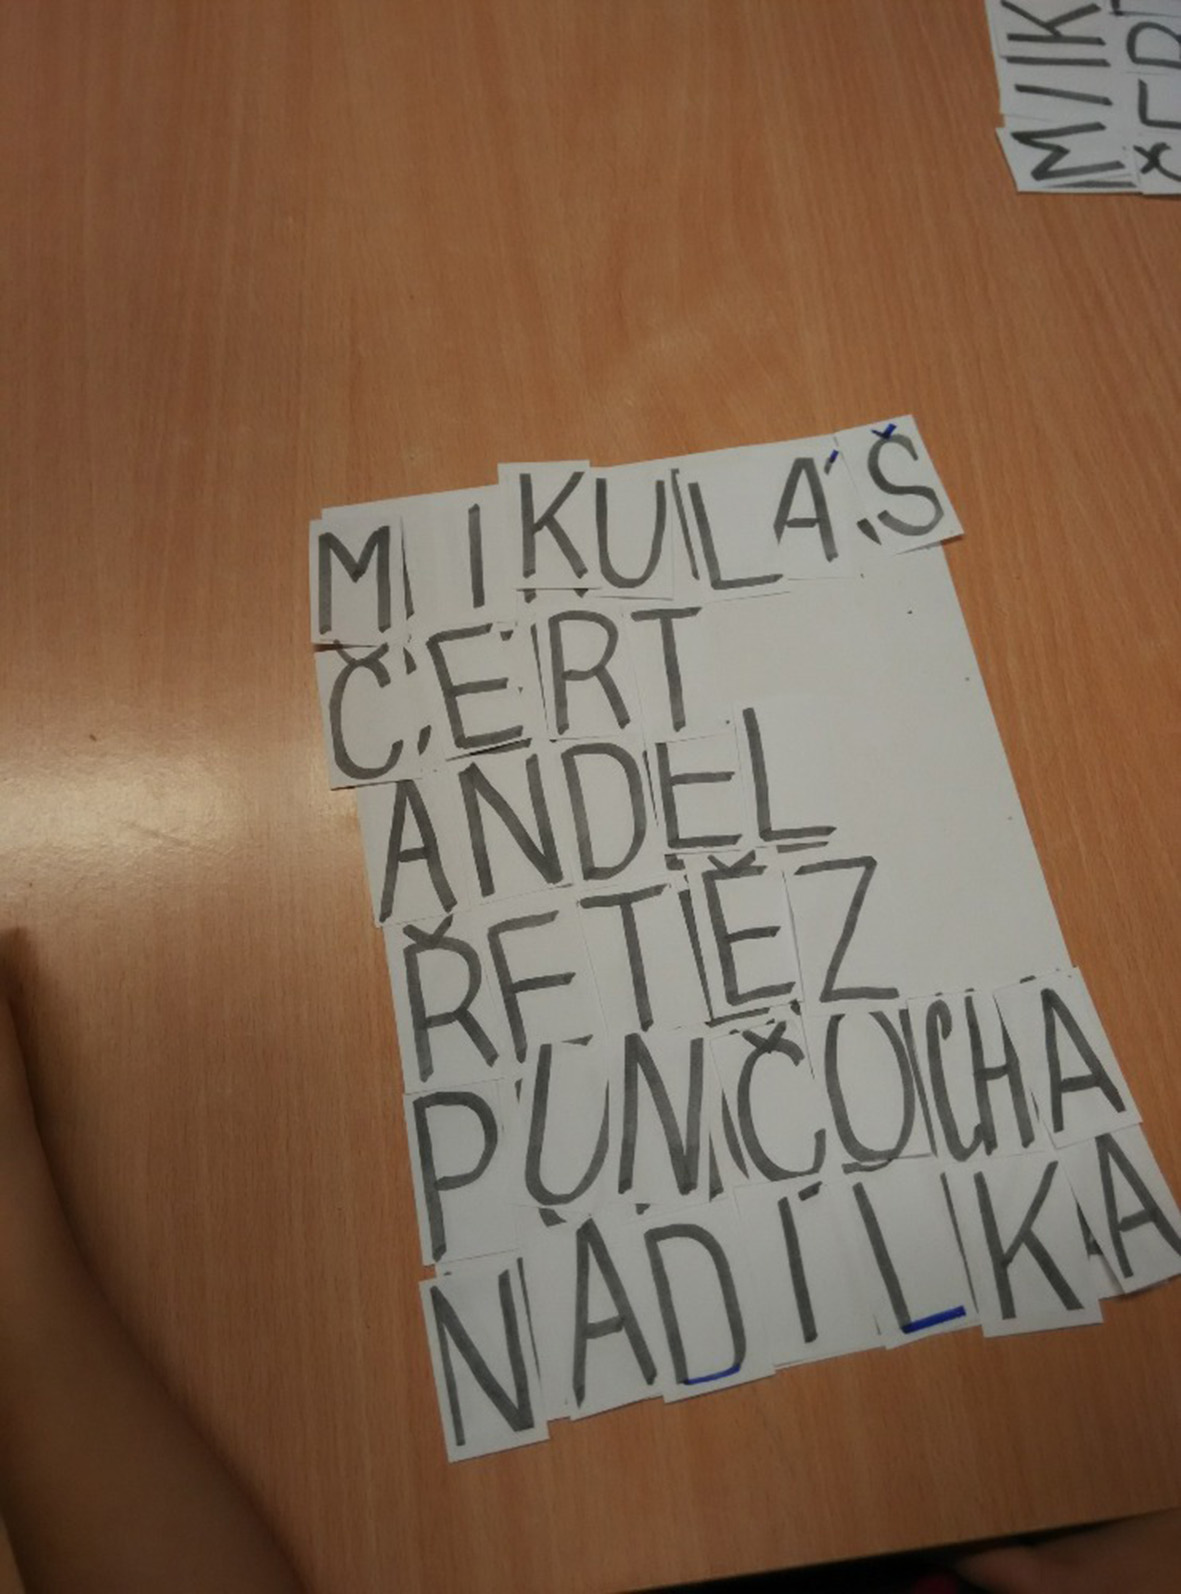 MIKULÁŠ
ČERT
ANDEL
ŘETĚZ
PUNČOCHA
NADÍLKA
MIK